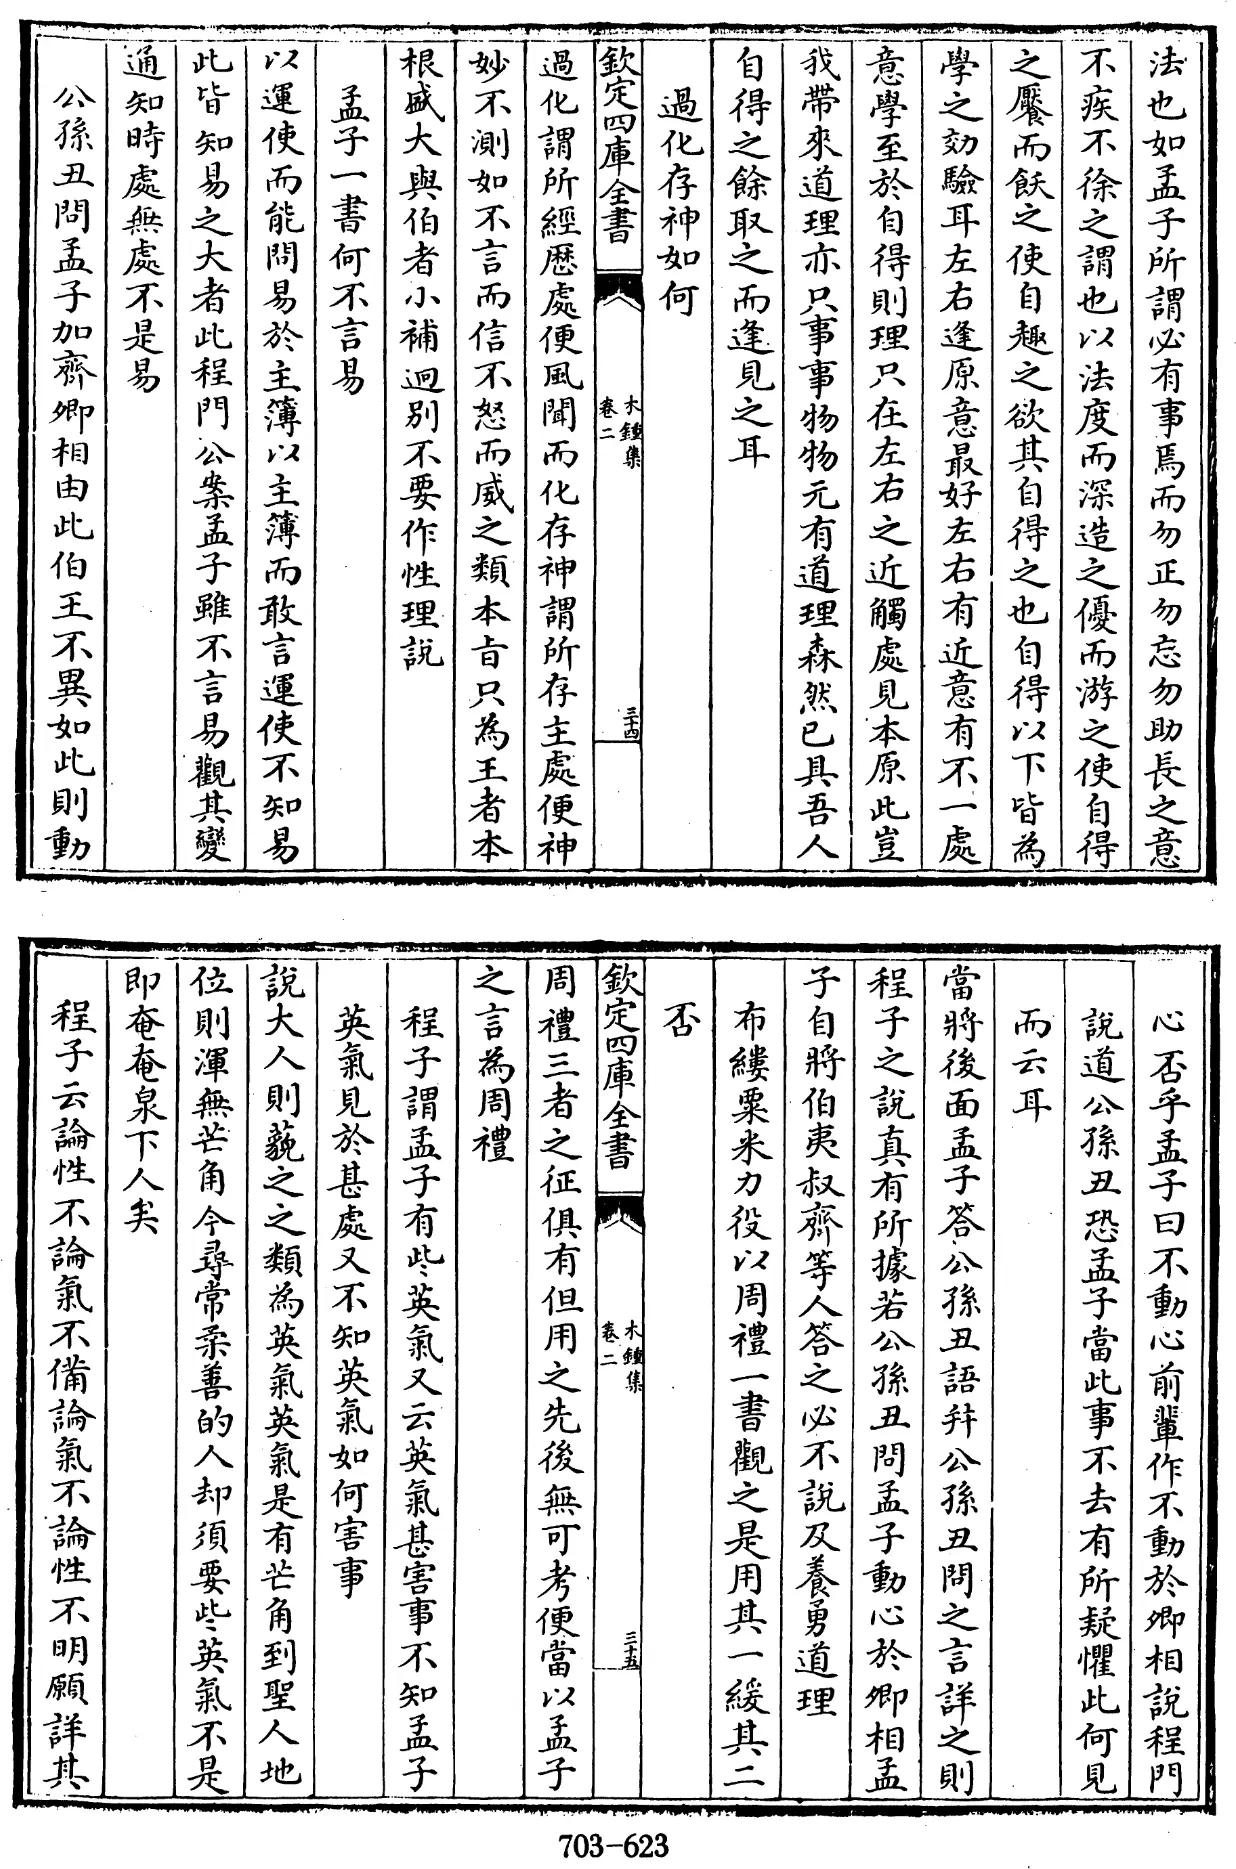 法也如孟子所謂必有事焉而勿正勿忘勿助長之意
不疾不徐之謂也以法度而深造之優而游之使自得
之饜而飫之使自趣之欲其自得之也自得以下皆為
學之効驗耳左右逢原意最好左右有近意有不一處
意學至於自得則理只在左右之近觸處見本原此豈
我帶來道理亦只事事物物元有道理森然已具吾人
自得之餘取之而逢見之耳
過化存神如何
欽定四庫全書
木鍾集
卷二
三十四
過化謂所經歷處便風聞而化存神謂所存主處便神
妙不測如不言而信不怒而威之類本旨只為王者本
根盛大與伯者小補迥別不要作性理說
孟子一書何不言易
以運使而能問易於主簿以主簿而敢言運使不知易
此皆知易之大者此程門公案孟子雖不言易觀其變
通知時處無處不是易
公孫丑問孟子加齊卿相由此伯王不異如此則動
心否乎孟子曰不動心前輩作不動於卿相說程門
說道公孫丑恐孟子當此事不去有所疑懼此何見
而云耳
當將後面孟子答公孫丑語并公孫丑問之言詳之則
程子之說真有所據若公孫丑問孟子動心於卿相孟
子自將伯夷叔齊等人答之必不說及養勇道理
布縷粟米力役以周禮一書觀之是用其一緩其二
否
欽定四庫全書
木鍾集
卷二
三十五
周禮三者之征俱有但用之先後無可考便當以孟子
之言為周禮
程子謂孟子有些英氣又云英氣甚害事不知孟子
英氣見於甚處又不知英氣如何害事
說大人則藐之之類為英氣英氣是有芒角到聖人地
位則渾無芒角今尋常柔善的人却須要些英氣不是
即奄奄泉下人矣
程子云論性不論氣不備論氣不論性不明願詳其
703-623